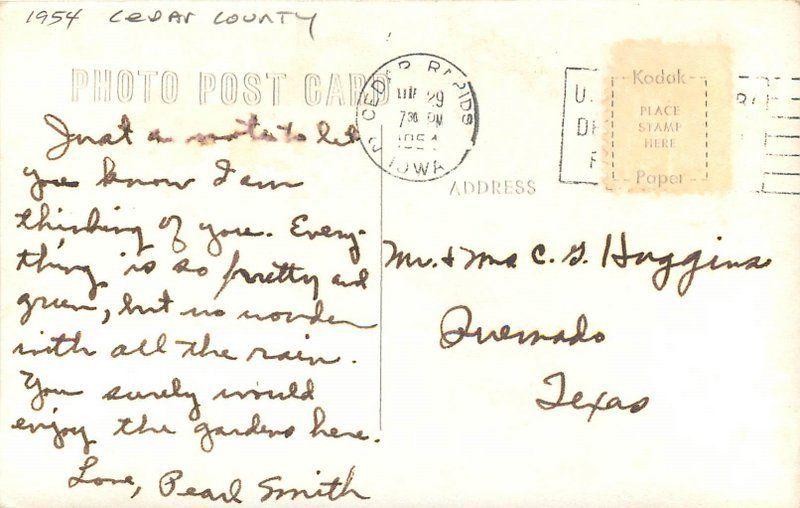 1954 CEDAR COUNTY
PHOTO POST CARD
Just a note to let
you know I am
thinking of you. Every-
thing is so pretty and
green, but no wonder
with all the rain.
You surely would
enjoy the gardens here.
Love, Pearl Smith
CEDAR RAPIDS
29
7 30 PM
1954
2 IOWA
U.
Kodak
PLACE
STAMP
HERE
Paper
ADDRESS
Mr. & Mrs C. G. Huggins
Quemado
Texas